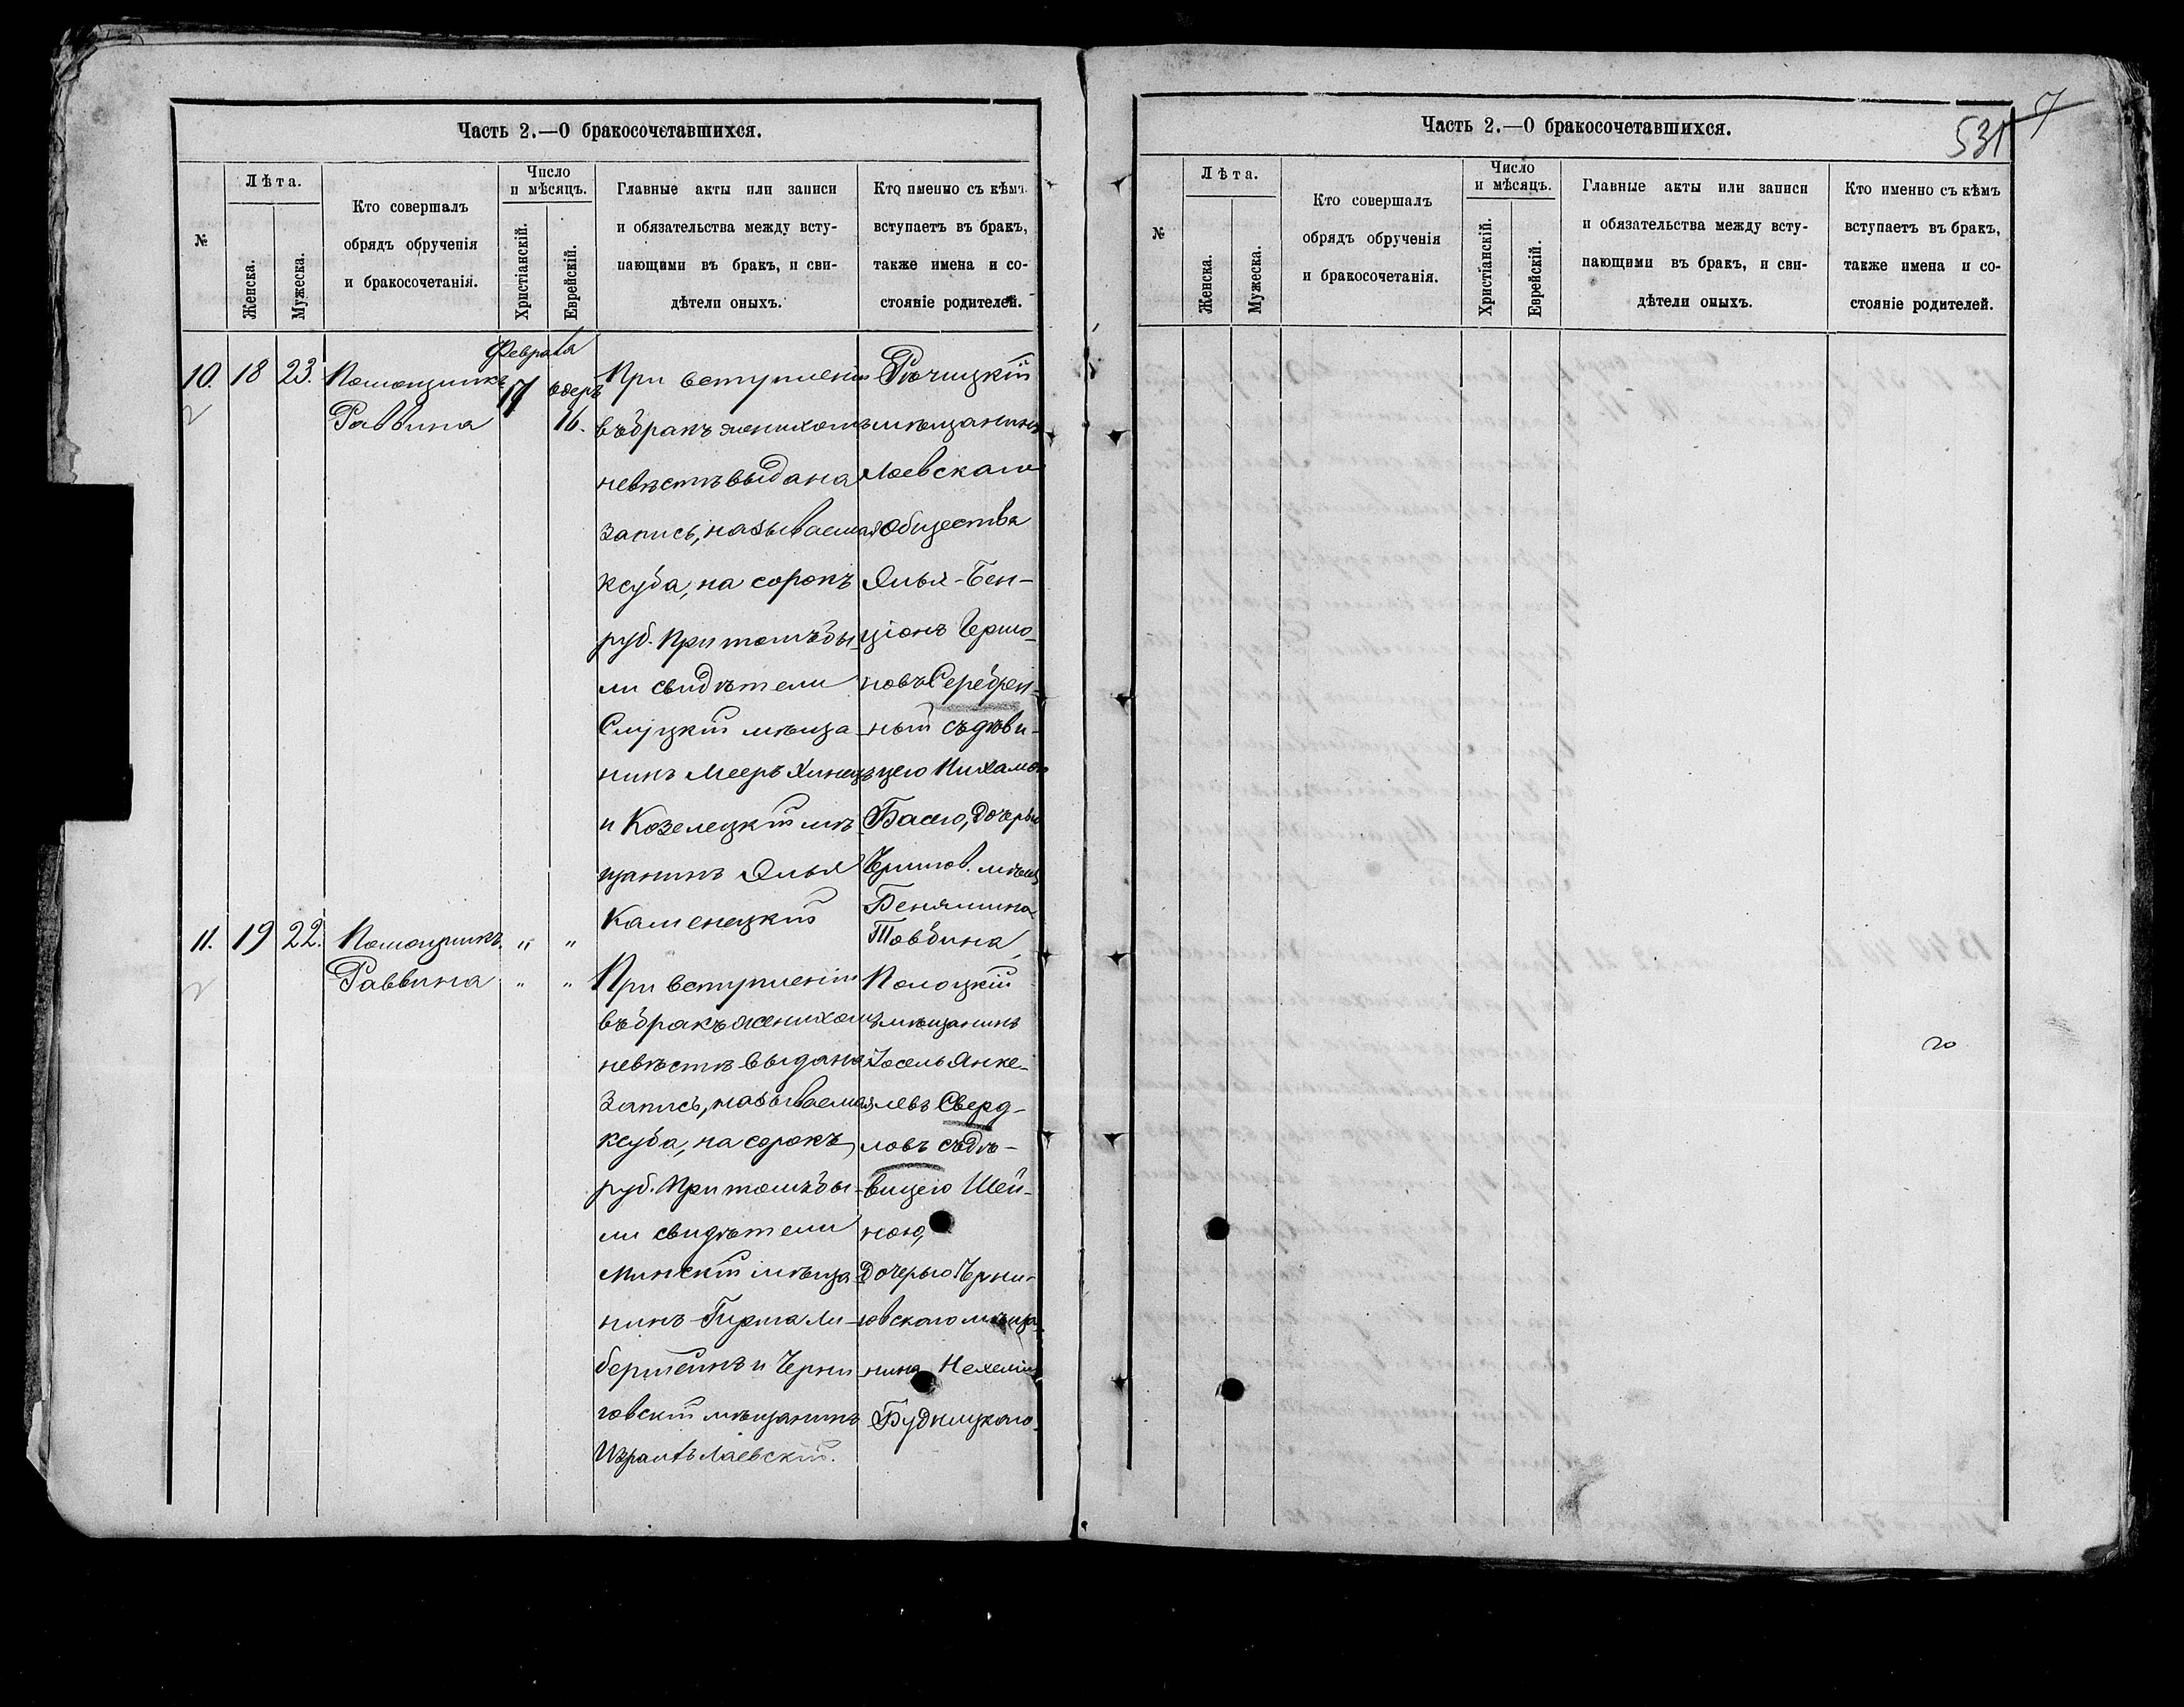 Часть 2.—О бракосочетавшихся.
№
Лѣта.
Женска.
Мужеска.
Кто совершалъ
обрядъ обрученія
и бракосочетанія.
Число
и мѣсяцъ.
Христіанскій.
Еврейскій.
Главные акты или записи
и обязательства между всту-
пающими въ бракъ, и сви-
дѣтели оныхъ.
Кто именно съ кѣмъ
вступаетъ въ бракъ,
также имена и со-
стояніе родителей.
10.
18
23.
Помощникъ
Раввина
Февраля
17
Одеръ
16.
При вступленіи
въ бракъ женихомъ
невѣстѣ выдана
запись, называемая
ксуба, на сорокъ
руб. При томъ бы-
ли свидѣтели
Слуцкій мѣща-
нинъ Мееръ Хинецъ
и Козелецкій мѣ-
щанинъ Элья
Каменецкій
Рѣчицкій
мѣщанинъ
Лоевскаго
Общества
Элья-Бен-
ціонъ Гершо-
новъ Серебрен-
ный съ дѣви-
цею Нихамою
Басею, дочерью
Черниг. мѣщ.
Беньямина
Товбина
11.
19
22.
Помощникъ
Раввина
"
"
"
"
При вступленіи
въ бракъ женихомъ
невѣстѣ выдана
запись, называемая
ксуба, на сорокъ
руб. При томъ бы-
ли свидѣтели
Минскій мѣща-
нинъ Гирша Ли-
берштейнъ и Черни
говскій мѣщанинъ
Израиль Лаевскій.
Полоцкій
мѣщанинъ
Іосель Янке-
левъ Сверд-
ловъ съ дѣ-
вицею Шей-
ною,
дочерью Черни-
говскаго мѣща-
нина Нехеміи
Будницкаго.
Часть 2.—О бракосочетавшихся.
531
7
№
Лѣта.
Женска.
Мужеска.
Кто совершалъ
обрядъ обрученія
и бракосочетанія.
Число
и мѣсяцъ.
Христіанскій.
Еврейскій.
Главные акты или записи
и обязательства между всту-
пающими въ бракъ, и сви-
дѣтели оныхъ.
Кто именно съ кѣмъ
вступаетъ въ бракъ,
также имена и со-
стояніе родителей.